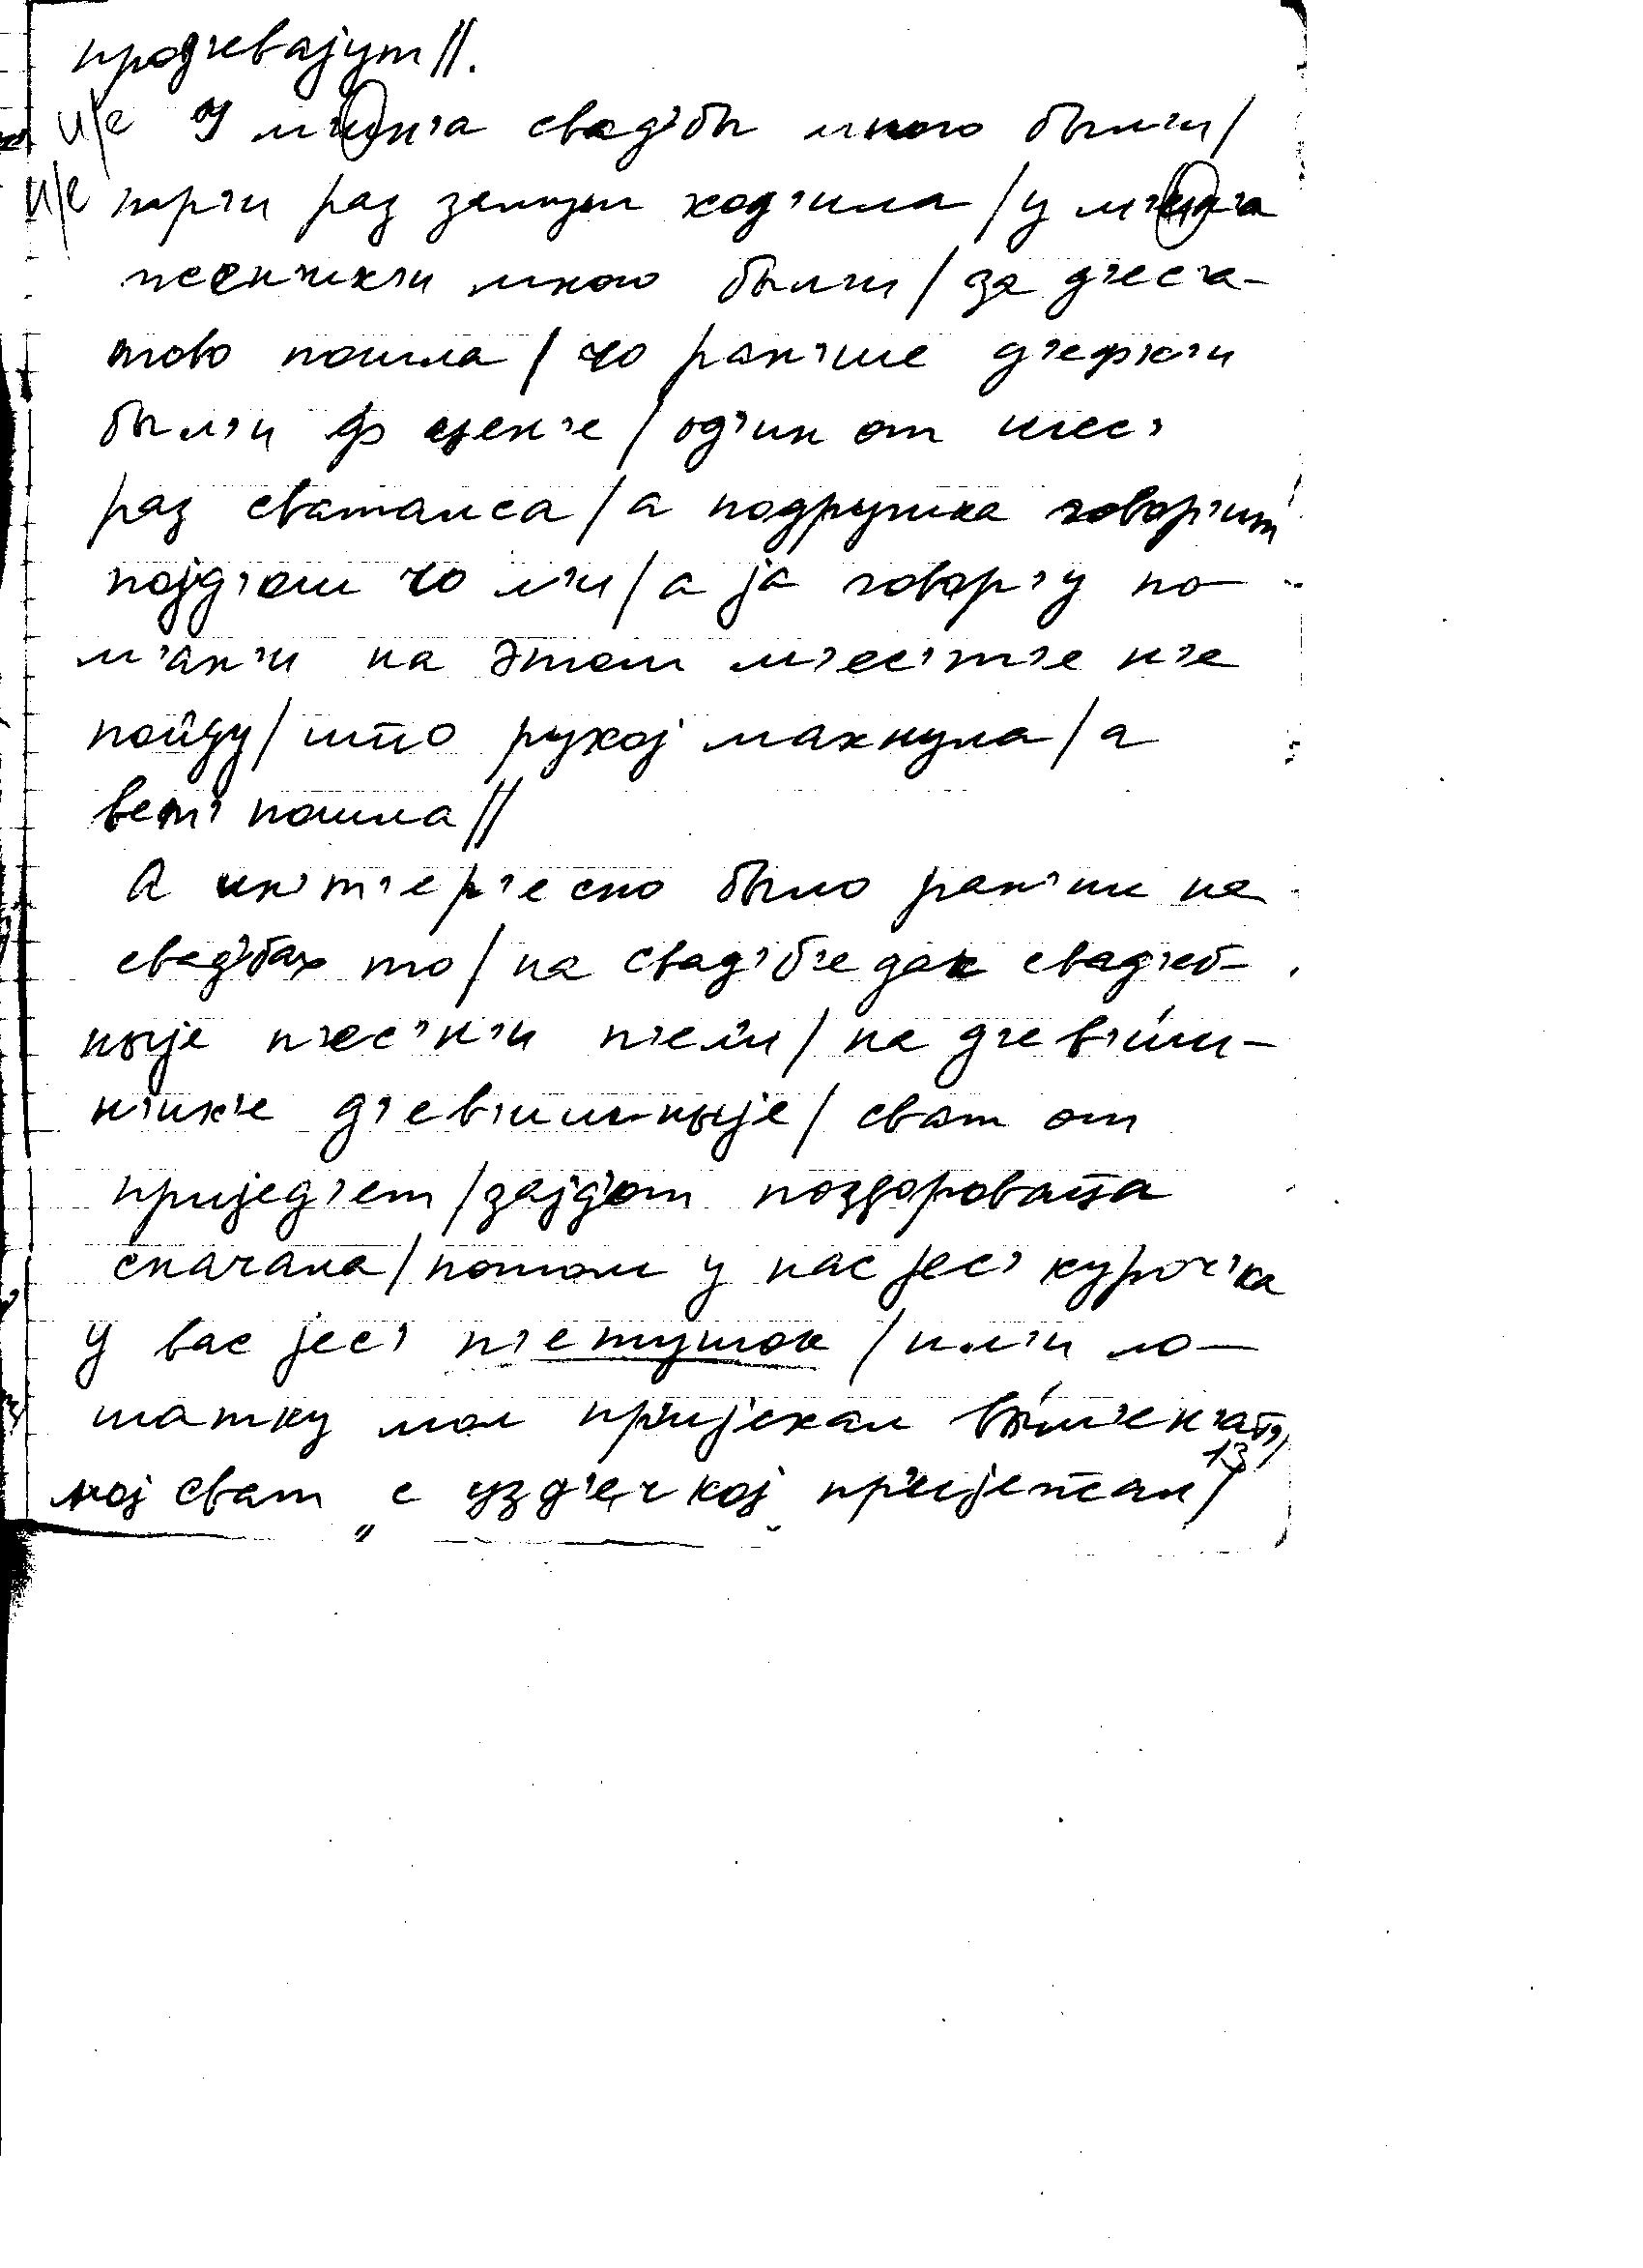 прод'евајут//.
и/е У м'ин'а свад'бы много был'и/
и/е тр'и раз замуж ход'ила/у м'ин'а
песн'ик'и много был'и/за д'ес'а-
тово пошла/чо ран'ше д'ефк'и
был'и ф цен'е/од'ин от шес'
раз сваталса/а подрушка говор'ит
појд'ош чо л'и/а ја говор'у по-
м'ан'и на этом м'ес'т'е н'е
пойду/што рукој махнула/а
вет' пошла//
А ин'т'ер'есно было ран'ши на
свад'бах то/на свад'б'е дак свад'еб-
ныје п'ес'н'и п'ел'и/на д'ев'иш-
н'ик'е д'ев'ишныје/сват от
пријед'ет/зајд'от поздороватса
сначала/потом у нас јес' куроч'ка
у вас јес' п'етушок/ил'и ло-
шатку мол пр'ијехал вы́м'ен'ат'/
мој сват „с узд'ечкој" пр'ијехал/ 13